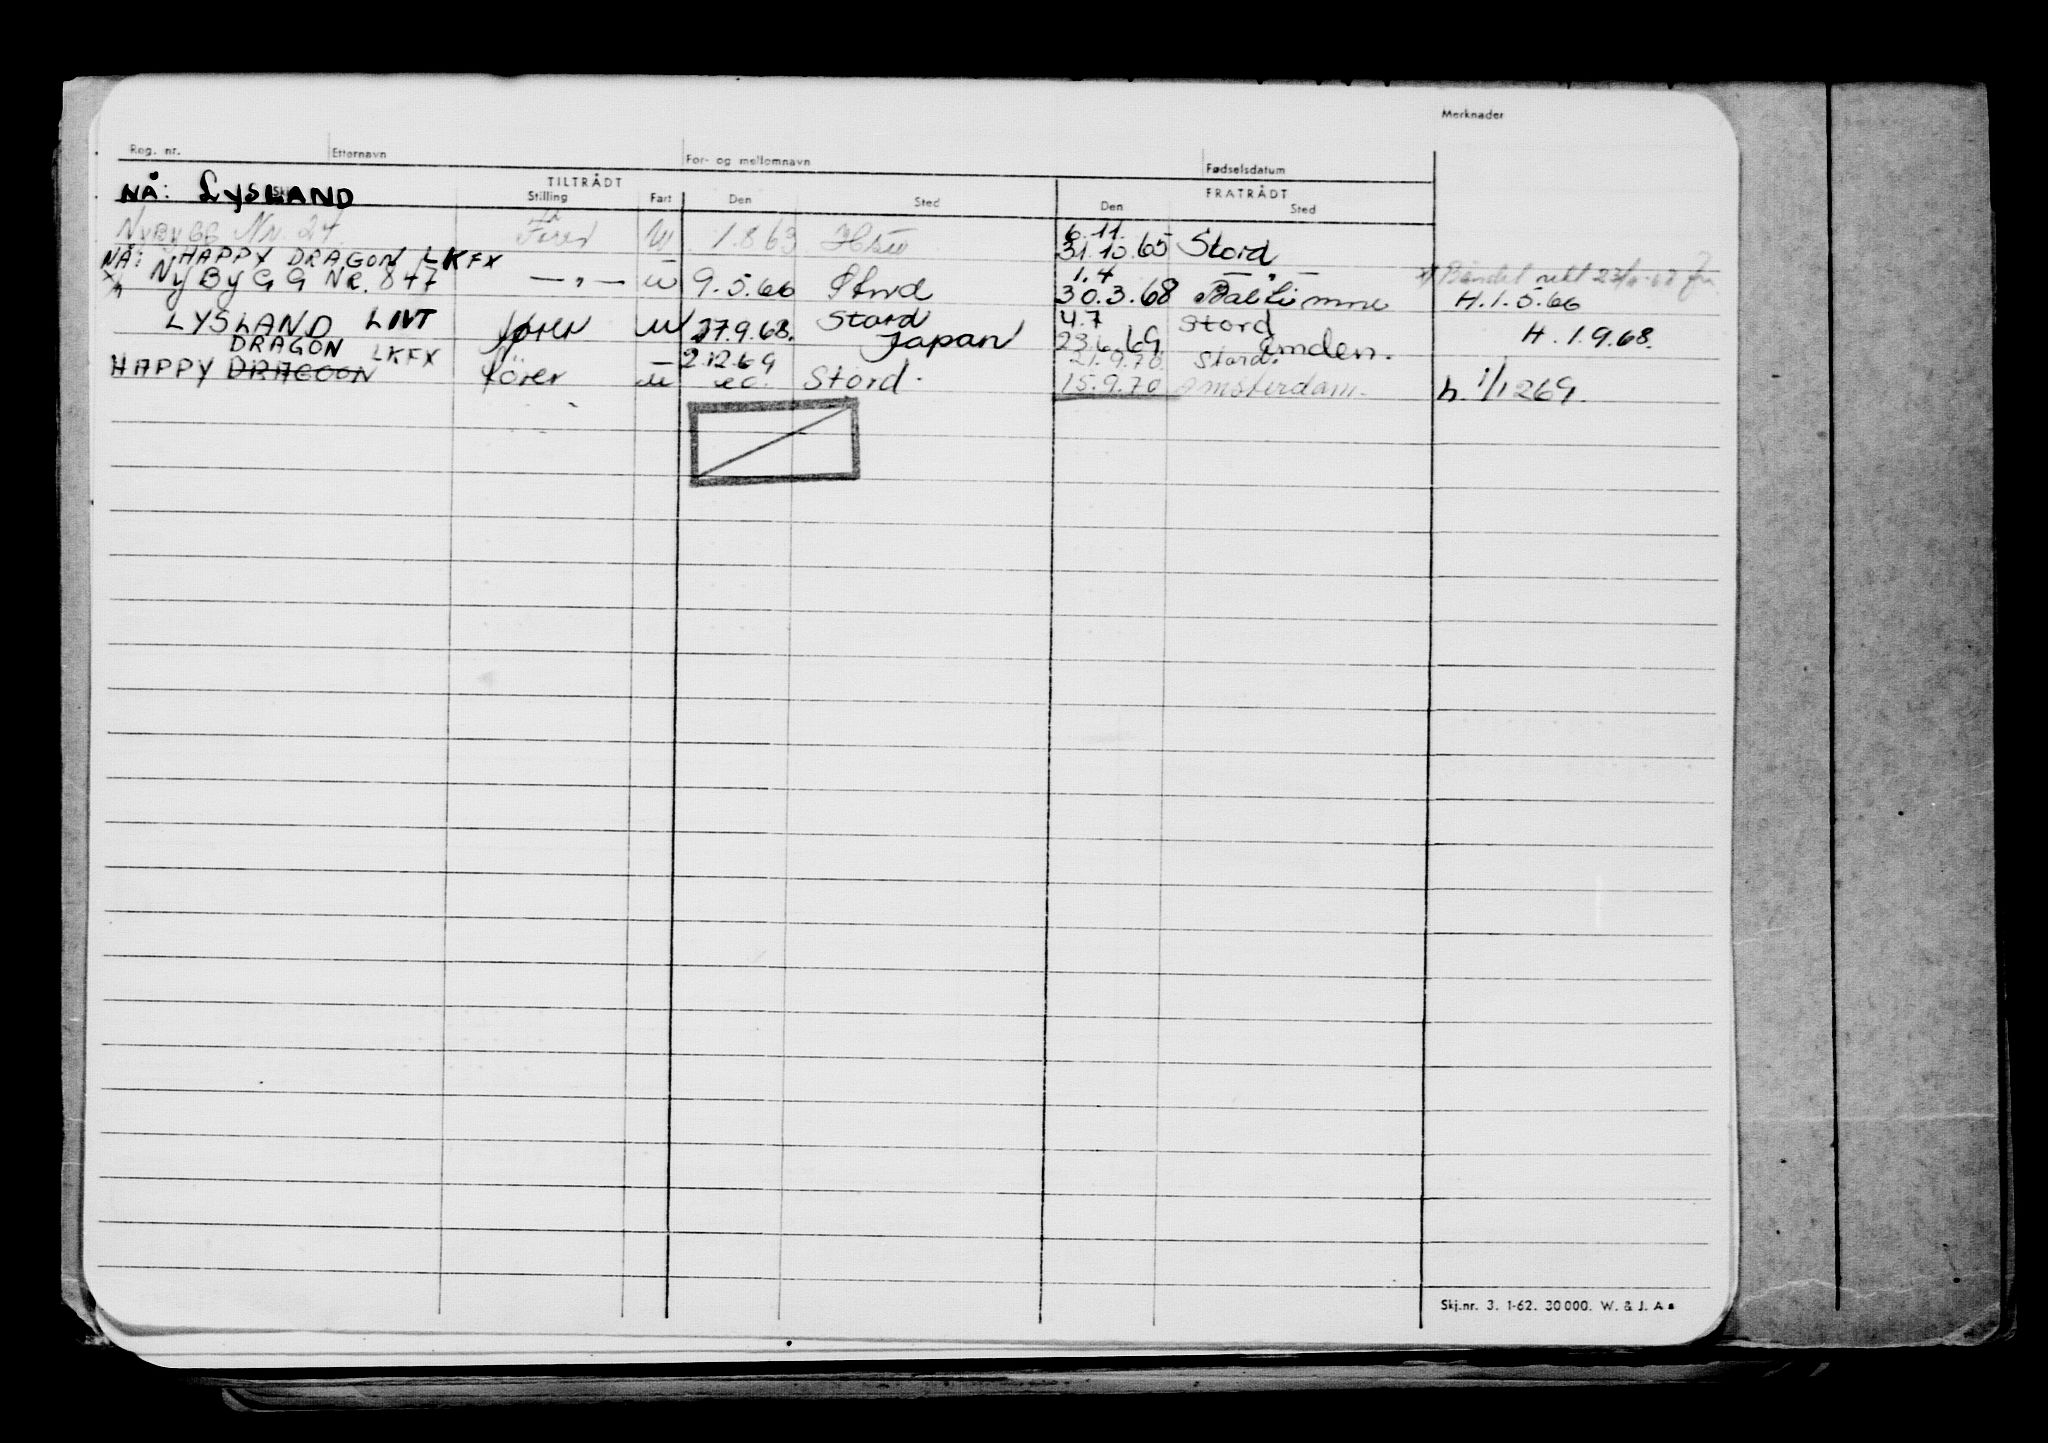 Merknader
Reg. nr. Etternavn For- og mellomnavn Fødselsdatum
TILTRÅDT FRATRÅDT
NÅ: LYSLAND Stilling Fart Den Sted Den Sted
6.11.
NYBYGG Nr. 27. Fører U 1.8.63 31.10.65 Stord
NÅ: HAPPY DRAGON LKFX 1.4 — " —
x) NYBYGG NR. 847 — " — U 9.5.66 Stord 30.3.68 Baltimore H.1.5.66
Stord 4.7 Stord
LYSLAND LIVT fører U 27.9.68. Japan 23.6.69 Emden. H. 1.9.68.
DRAGON LKFX 2.12.69 21.9.70. Stord.
HAPPY DRAGOON fører U Stord. 15.9.70 Amsterdam. h. 1/12 69.
Skj.nr. 3. 1-62. 30000. W. & J. A s